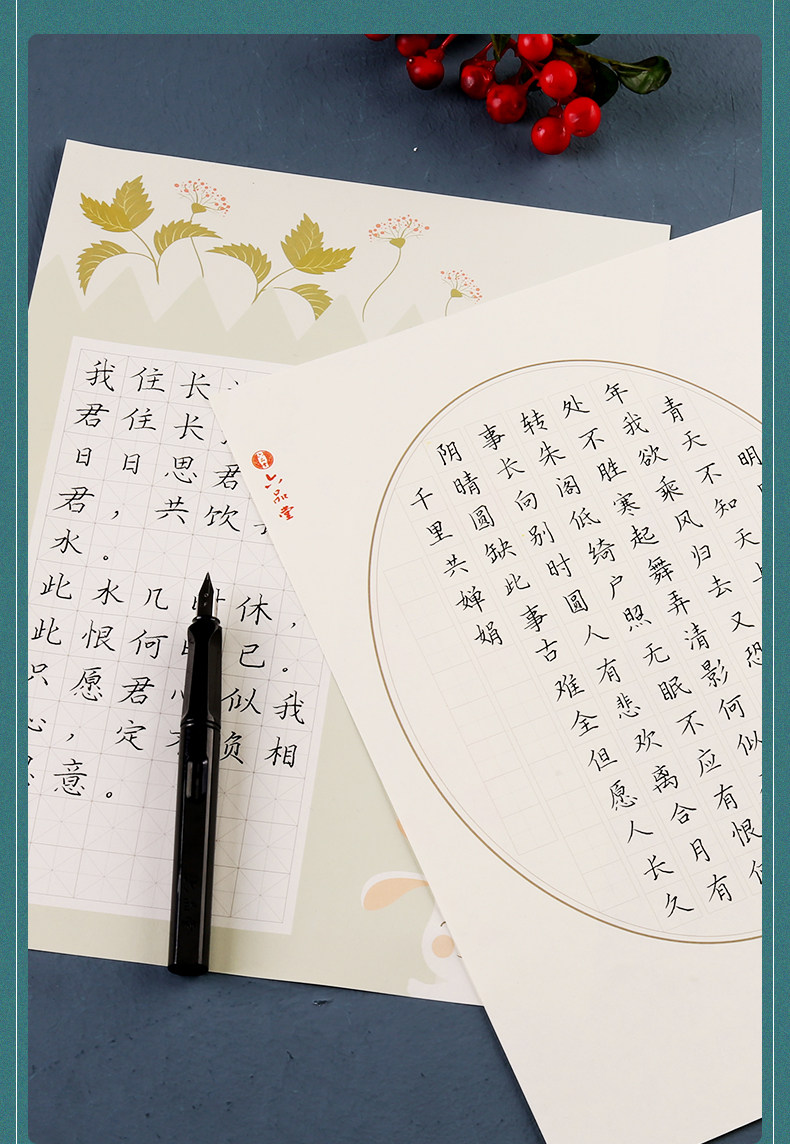 我住长
君住长
日日思君
君，共饮
水。
此水几休，
此恨何已。
只愿君心似我
心，定不负相
意。
六品堂
明
青天不知天上
年我欲乘风归去又恐
处不胜寒起舞弄清影何似
转朱阁低绮户照无眠不应有恨何
事长向别时圆人有悲欢离合月有
阴晴圆缺此事古难全但愿人长久
千里共婵娟